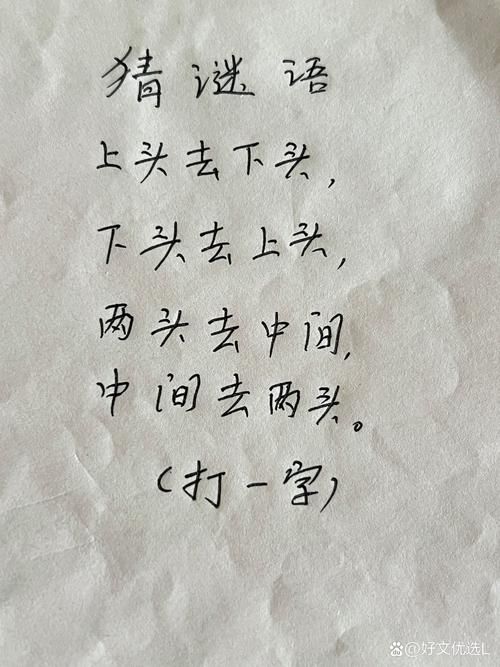 猜谜语
上头去下头,
下头去上头,
两头去中间,
中间去两头。
(打一字)
@好文优选L